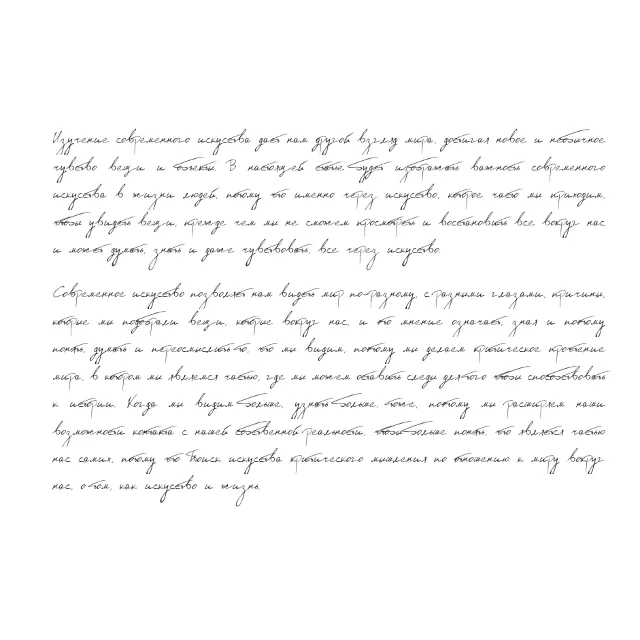 Изучение современного искусства дает нам другой взгляд мира, достигая новое и необычное
чувство вещи и объекты. В настоящей статье будет изображать важность современного
искусства в жизни людей, потому что именно через искусство, которое часто мы приходим,
чтобы увидеть вещи, прежде чем мы не сможем просмотреть и восстановить все вокруг нас
и может думать, знать и даже чувствовать, все через искусство.
Современное искусство позволяет нам видеть мир по-разному, с разными глазами, причины,
которые мы подобрали вещи, которые вокруг нас, и это мнение означает, зная и потому
понять, думать и переосмыслить то, что мы видим, потому мы делаем критическое прочтение
мира, в котором мы являемся частью, где мы можем оставить следы для того чтобы способствовать
к истории. Когда мы видим больше, узнать больше, тоже, потому мы расширяем наши
возможности контакта с нашей собственной реальности, чтобы больше понять, что является частью
нас самих, потому что Поиск искусства критического мышления по отношению к миру вокруг
нас, о том, как искусство и жизнь.